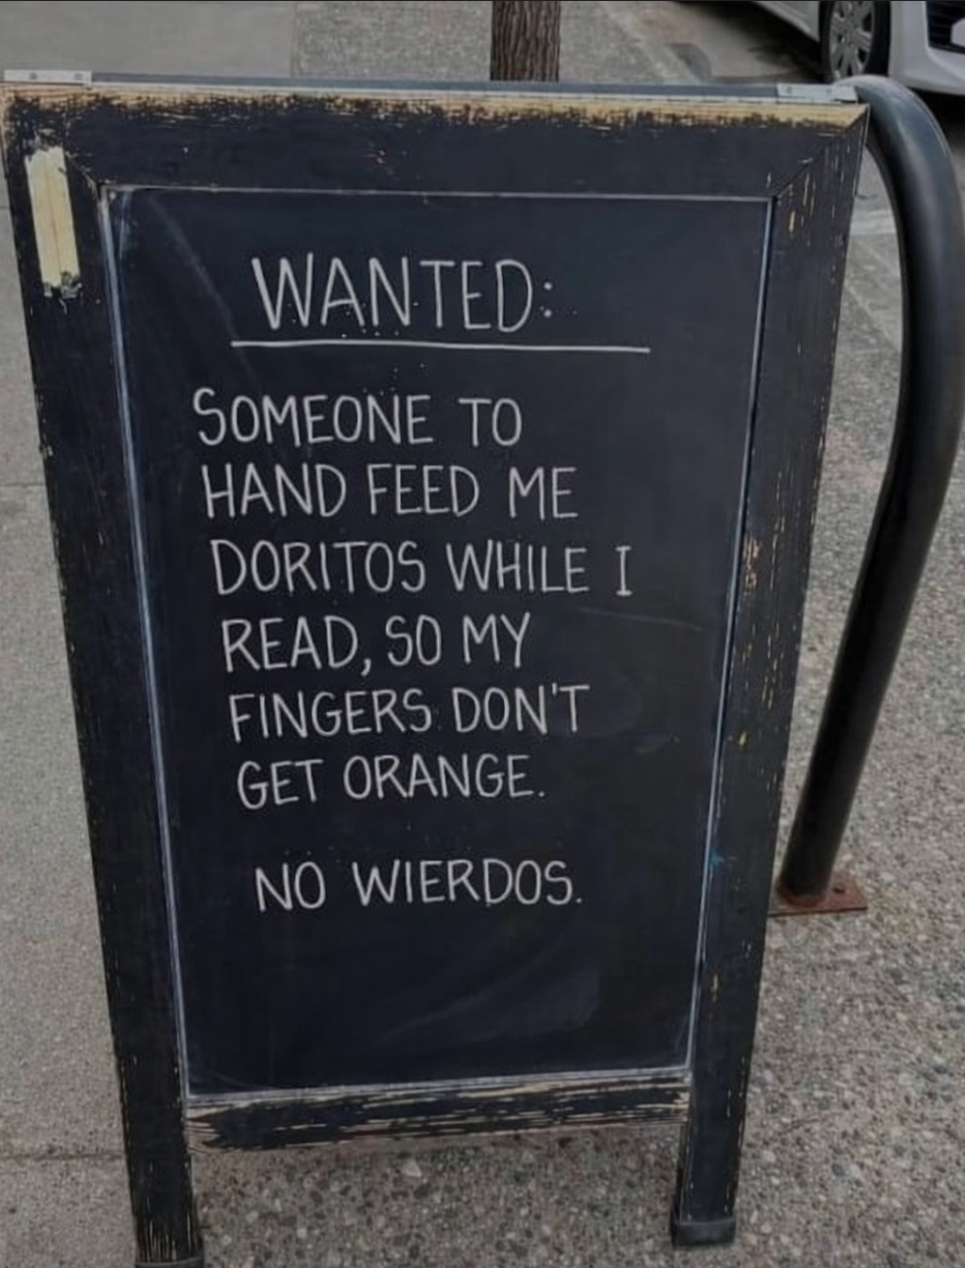 WANTED:
SOMEONE TO
HAND FEED ME
DORITOS WHILE I
READ, SO MY
FINGERS DON'T
GET ORANGE.
NO WIERDOS.